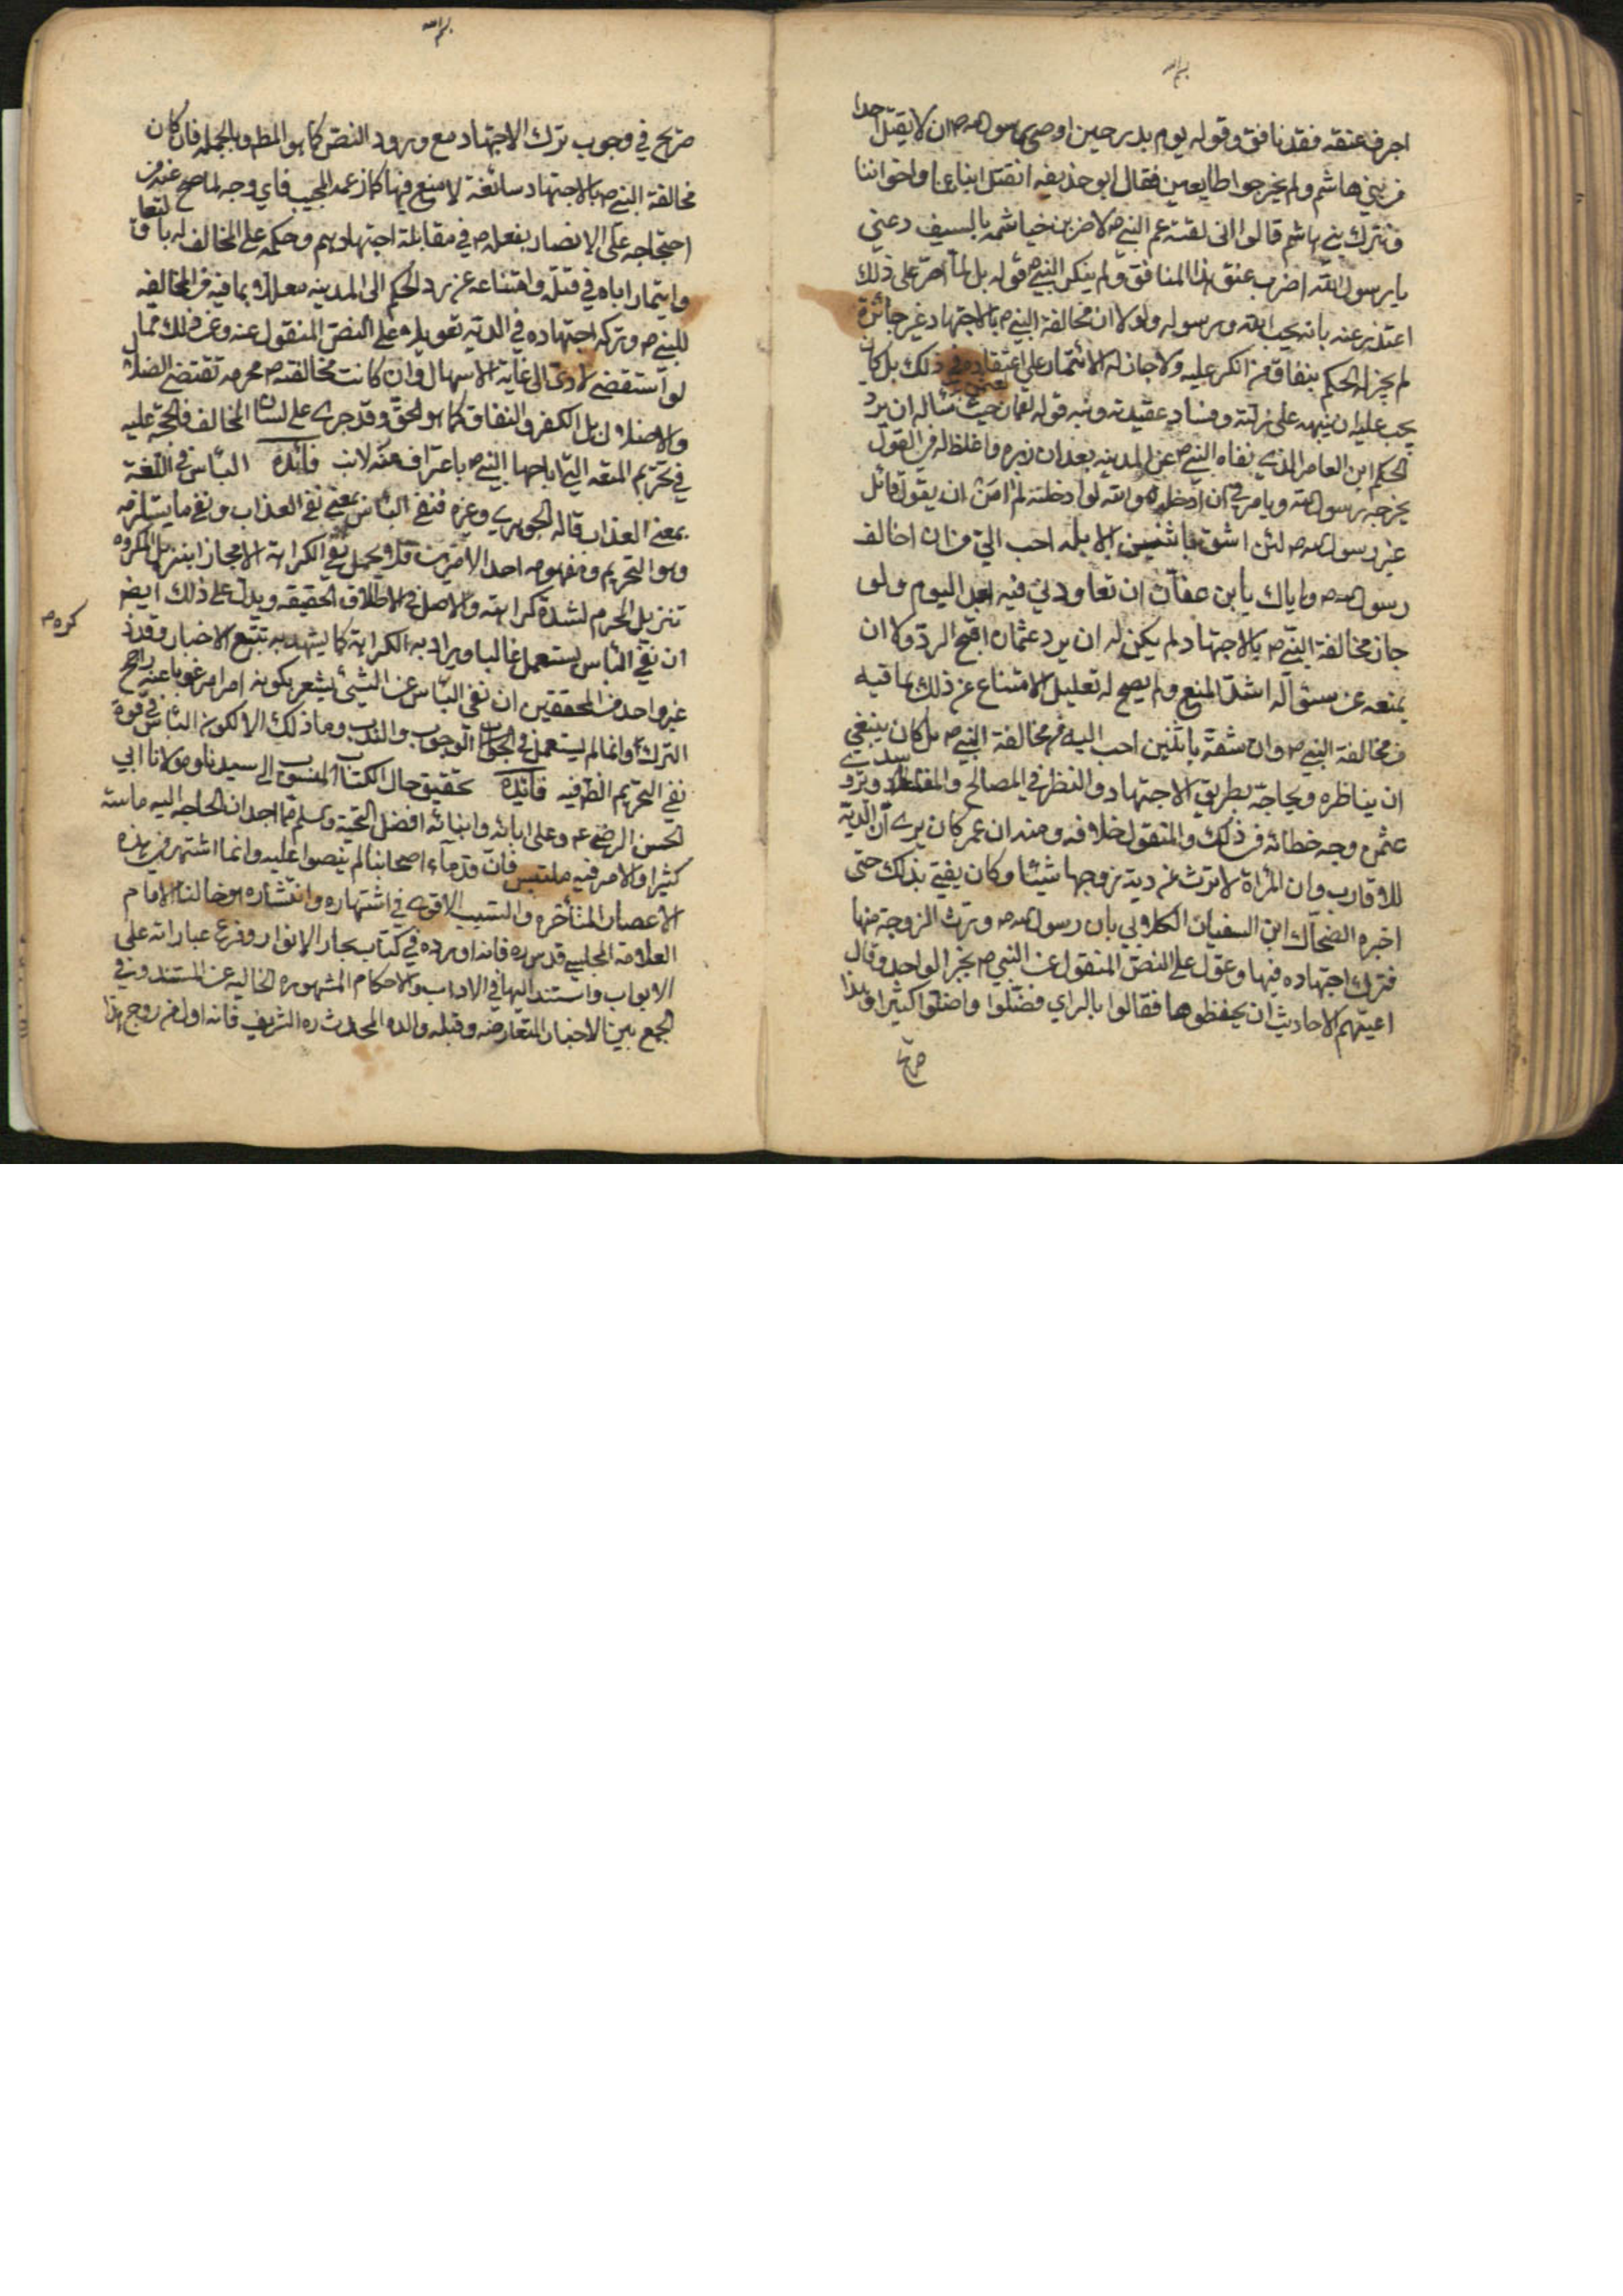 بسم الله
اجرف عنقه فقد نافق وقوله يوم بدر حين اوصى رسول الله ص ان لا يقتل احدا
من بني هاشم ولم يخرجوا طايعين فقال ابو حذيفه انقتل ابناءنا واخواننا
ونترك بني هاشم قالوا الئن لقيت عم النبي ص لاضربن خياشمه بالسيف دعني
يا رسول الله اضرب عنق هذا المنافق ولم ينكر النبي ص قوله بل لما اصر على ذلك
اعتذر عنه بانه يحب الله ورسوله ولولا ان مخالفة النبي ص بالاجتهاد غير جائزة
لم يجز له الحكم بنفاق من انكر عليه ولا جاز له الائتمار على اعتقاده في ذلك بل كان
يجب عليه ان ينبهه على زلته وفساد عقيدته ومنه قوله لعثمان حيث سأله ان يرد
الحكم ابن العاص الذي نفاه النبي ص عن المدينه بعد ان زبره واغلظ له في القول
يخرجه رسول الله ويامرني ان ادخله والله لو ادخلته لم آمن ان يقول قائل
غير رسول الله ص لئن اشق باثنين الابلمه احب الي من ان اخالف
رسول الله ص واياك يا بن عفان ان تعاودني فيه بعد اليوم ولو
جاز مخالفة النبي ص بالاجتهاد لم يكن له ان يرد عثمان اقبح الرد ولا ان
يمنعه عن سؤاله اشد المنع ولم يصح له تعليل الامتناع عن ذلك بما فيه
من مخالفة النبي ص وان شقه باثنين احب اليه من مخالفة النبي ص بل كان ينبغي
ان يناظره ويحاجه بطريق الاجتهاد والنظر في المصالح والمفاسد
عثمن وجه خطائه في ذلك والمنقول خلافه ومنه ان عمر كان يرى ان الدية
للاقارب وان المرأة لا ترث من دية زوجها شيئا وكان يفتي بذلك حتى
اخبره الضحاك ابن السفيان الكلابي بان رسول الله ص ورث الزوجة منها
فترك اجتهاده فيها وعول على النص المنقول عن النبي ص بخبر الواحد وقال
اعيتهم الاحاديث ان يحفظوها فقالوا بالراي فضلوا واضلوا كثيرا وهذا
صريح
بسم الله
صريح في وجوب ترك الاجتهاد مع ورود النص كما هو المظ وبالجمله فان كان
مخالفة النبي ص بالاجتهاد سائغة لا منع فيها كما زعمه المجيب فاي وجه لما صح عنه من
احتجاجه على الانصار بفعله ص في مقابلة اجتهادهم وحكمه على المخالف له
وايتماره اياه في قتله وامتناعه عن رد الحكم الى المدينه معللا بما فيه من المخالفه
للنبي ص وتركه اجتهاده في الدية تعويلا على النص المنقول عنه وغير ذلك مما
لو استقضى لادى الى غاية الاسهال وان كانت مخالفته ص محرمه تقتضي الضلال
والاضلال بل الكفر والنفاق كما هو الحق وقد جرى على لسان المخالف فالحجة عليه
في تحريم المتعه التي اباحها النبي ص باعتراف منه لازب فائدة البأس في اللغة
بمعنى العذاب قاله الجوهري وغيره فنفي البأس بمعنى نفي العذاب ونفي ما يستلزمه
وهو التحريم ومفهومه احد الامرين فلا يحمل على الكراهة الا مجازا بتنزيل المكروه
تنزيل المحرم لشدة كراهته والاصل في الاطلاق الحقيقه ويدل على ذلك ايض
ان نفي البأس يستعمل غالبا ويراد به الكراهة كما يشهد به تتبع الاخبار وقد ذ
كره م
غير واحد من المحققين ان نفي البأس عن الشيء يشعر بكونه امرا مرغوبا عنه راجح
الترك وانما لم يستعمل في الجواب الوجوب والندب وما ذلك الا لكون البأس في قوة
نفي التحريم الظ فيه فائدة تحقيق حال الكتاب المنسوب الى سيدنا ومولانا ابي
الحسن الرضي ع وعلى ابائه وابنائه افضل التحية وتسلم مما اجد ان الحاجه اليه ماسة
كثيرا والامر فيه ملتبس فان قدماء اصحابنا لم ينصوا عليه وانما اشتهر في هذه
الاعصار المتأخره والسبب الاقوى في اشتهاره وانتشاره هو خالنا الامام
العلامة المجلسي قدس ره فانه اورده في كتاب بحار الانوار وفرع عباراته على
الابواب واستند اليها في الاداب والاحكام المشهوره الخاليه عن المستند وفي
الجمع بين الاخبار المتعارضه وقبله والده المحدث ره الشريف فانه اول من روج هذا